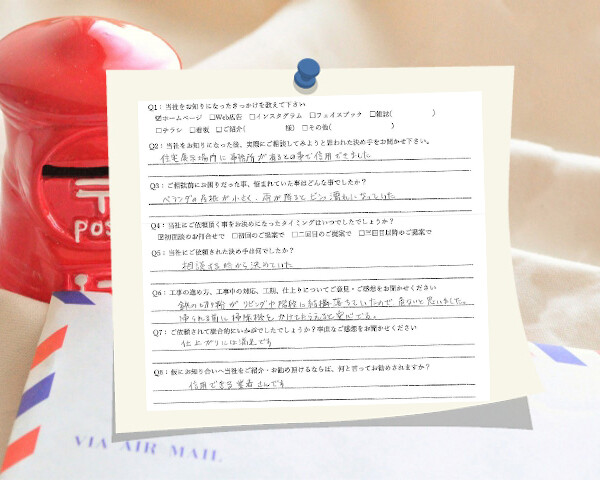 Q1：当社をお知りになったきっかけを教えて下さい
☑ホームページ □Web広告 □インスタグラム □フェイスブック □雑誌( )
□チラシ □看板 □ご紹介( 様) □その他( )
Q2：当社をお知りになった後、実際にご相談してみようと思われた決め手をお聞かせ下さい。
住宅展示場内に事務所が有るとの事で信用できました
Q3：ご相談前にお困りだった事、悩まれていた事はどんな事でしたか？
ベランダの屋根が小さく、雨が降るとビショ濡れになっていた
Q4：当社にご依頼頂く事をお決めになったタイミングはいつでしたでしょうか？
☑初回面談のお打合せで □初回のご提案で □二回目のご提案で □三回目以降のご提案で
Q5：当社にご依頼された決め手は何でしたか？
相談する時から決めていた
Q6：工事の進め方、工事中の対応、工期、仕上りについてご意見・ご感想をお聞かせください
鉄の切り粉がリビングや階段に結構落ちていたので、危ないと思いました。
帰られる前に掃除機をかけてもらえると安心です。
Q7：ご依頼されて総合的にいかがでしたでしょうか？率直なご感想をお聞かせください
仕上がりには満足です
Q8：仮にお知り合いへ当社をご紹介・お勧め頂けるならば、何と言ってお勧めされますか？
信用できる業者さんです
POS
VIA AIR MAIL